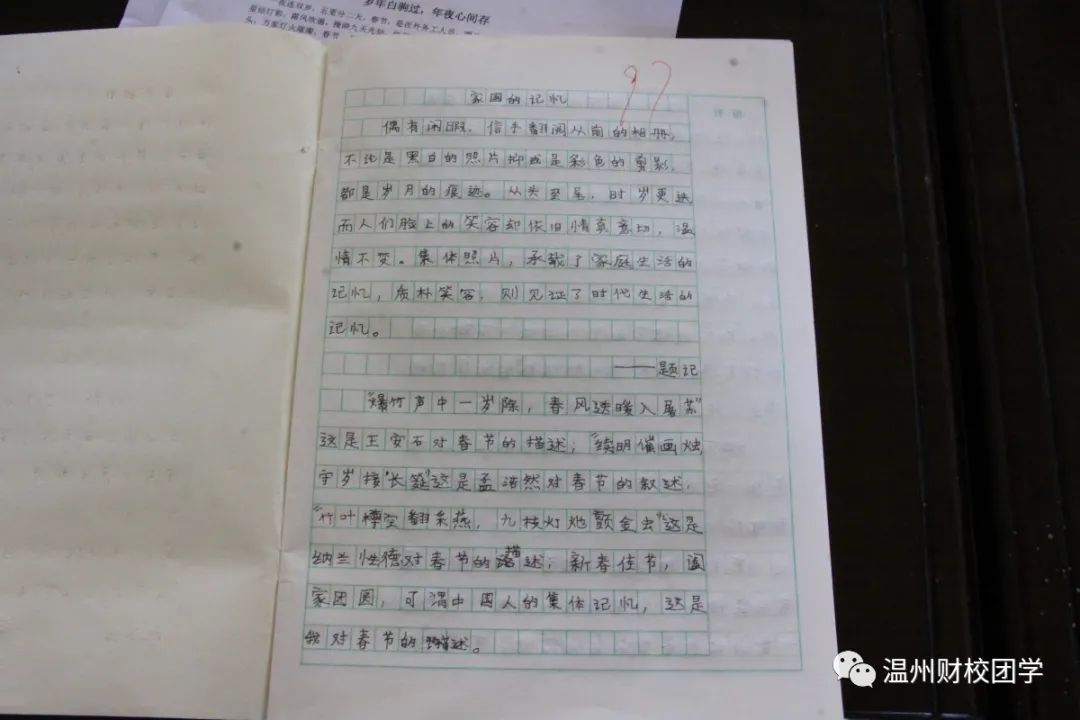 岁年白驹过，年夜心间存
97
家国的记忆
偶有闲暇，信手翻阅从前的相册，
不论是黑白的照片抑或是彩色的剪影，
都是岁月的痕迹。从头至尾，时岁更迭
而人们脸上的笑容却依旧情真意切，温
情不变。集体照片，承载了家庭生活的
记忆，质朴笑容，则见证了时代生活的
记忆。
——题记
"爆竹声中一岁除，春风送暖入屠苏"
这是王安石对春节的描述；"续明催画烛，
守岁接长筵"这是孟浩然对春节的叙述，
"竹叶樽空翻采燕，九枝灯灺颤金虫"这是
纳兰性德对春节的描述；新春佳节，阖
家团圆，可谓中国人的集体记忆，这是
我对春节的描述。
温州财校团学